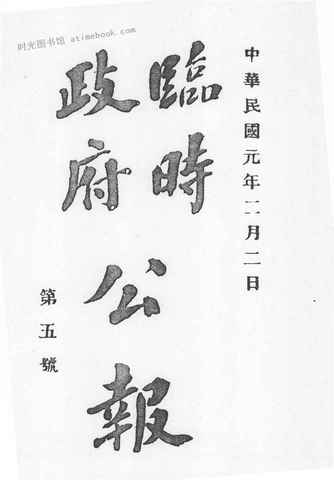 时光图书馆 atimebook.com
中華民國元年二月二日
臨時
政府
公報
第五號